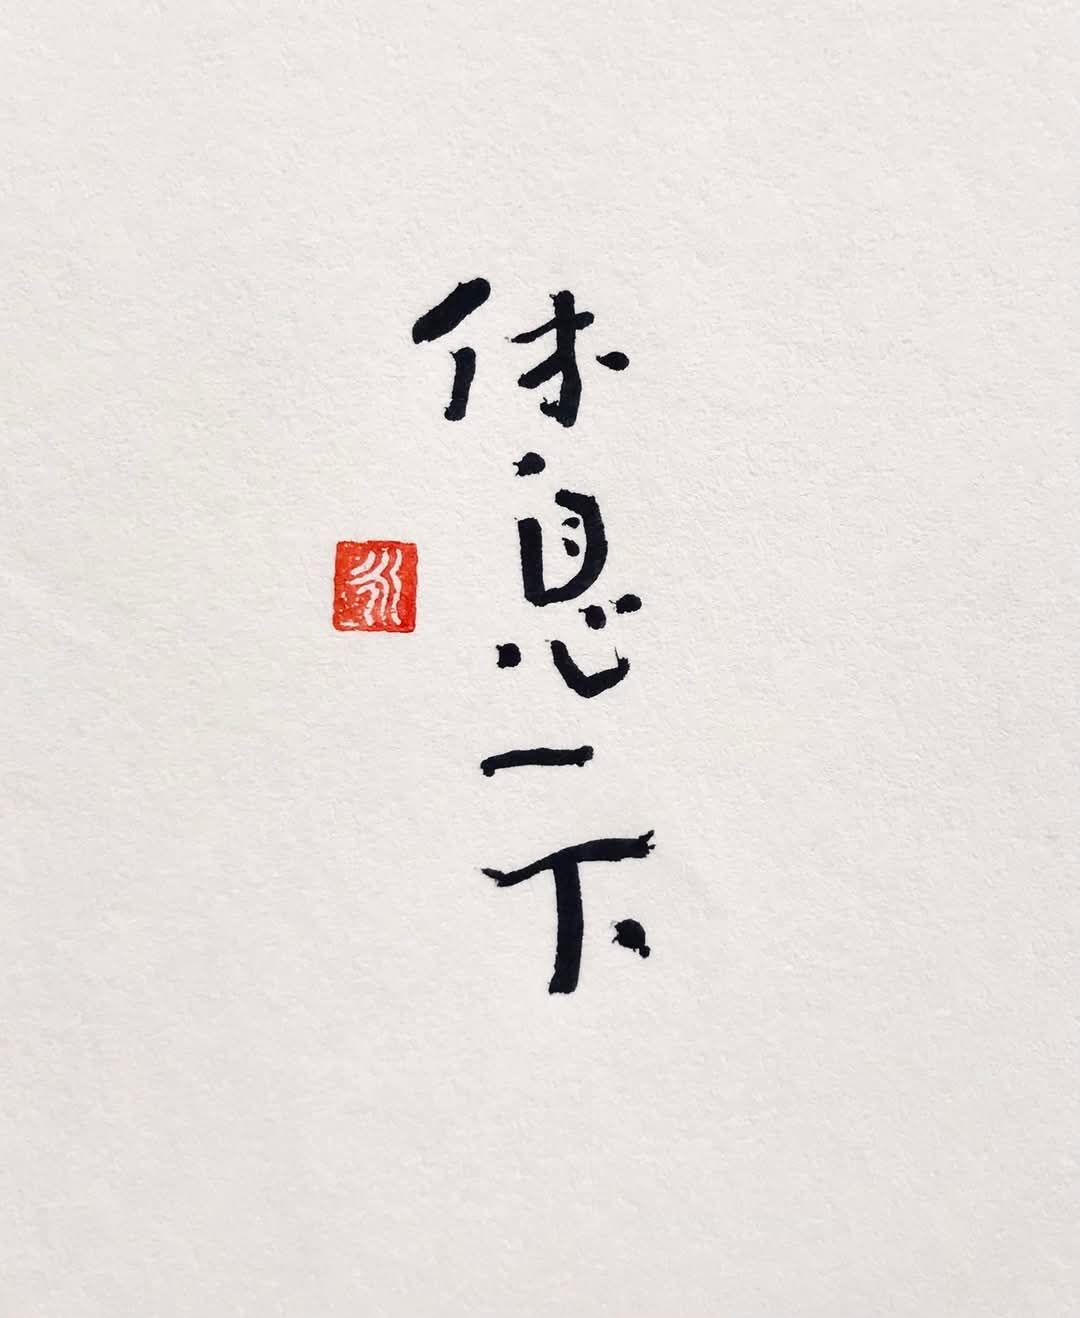 休息一下